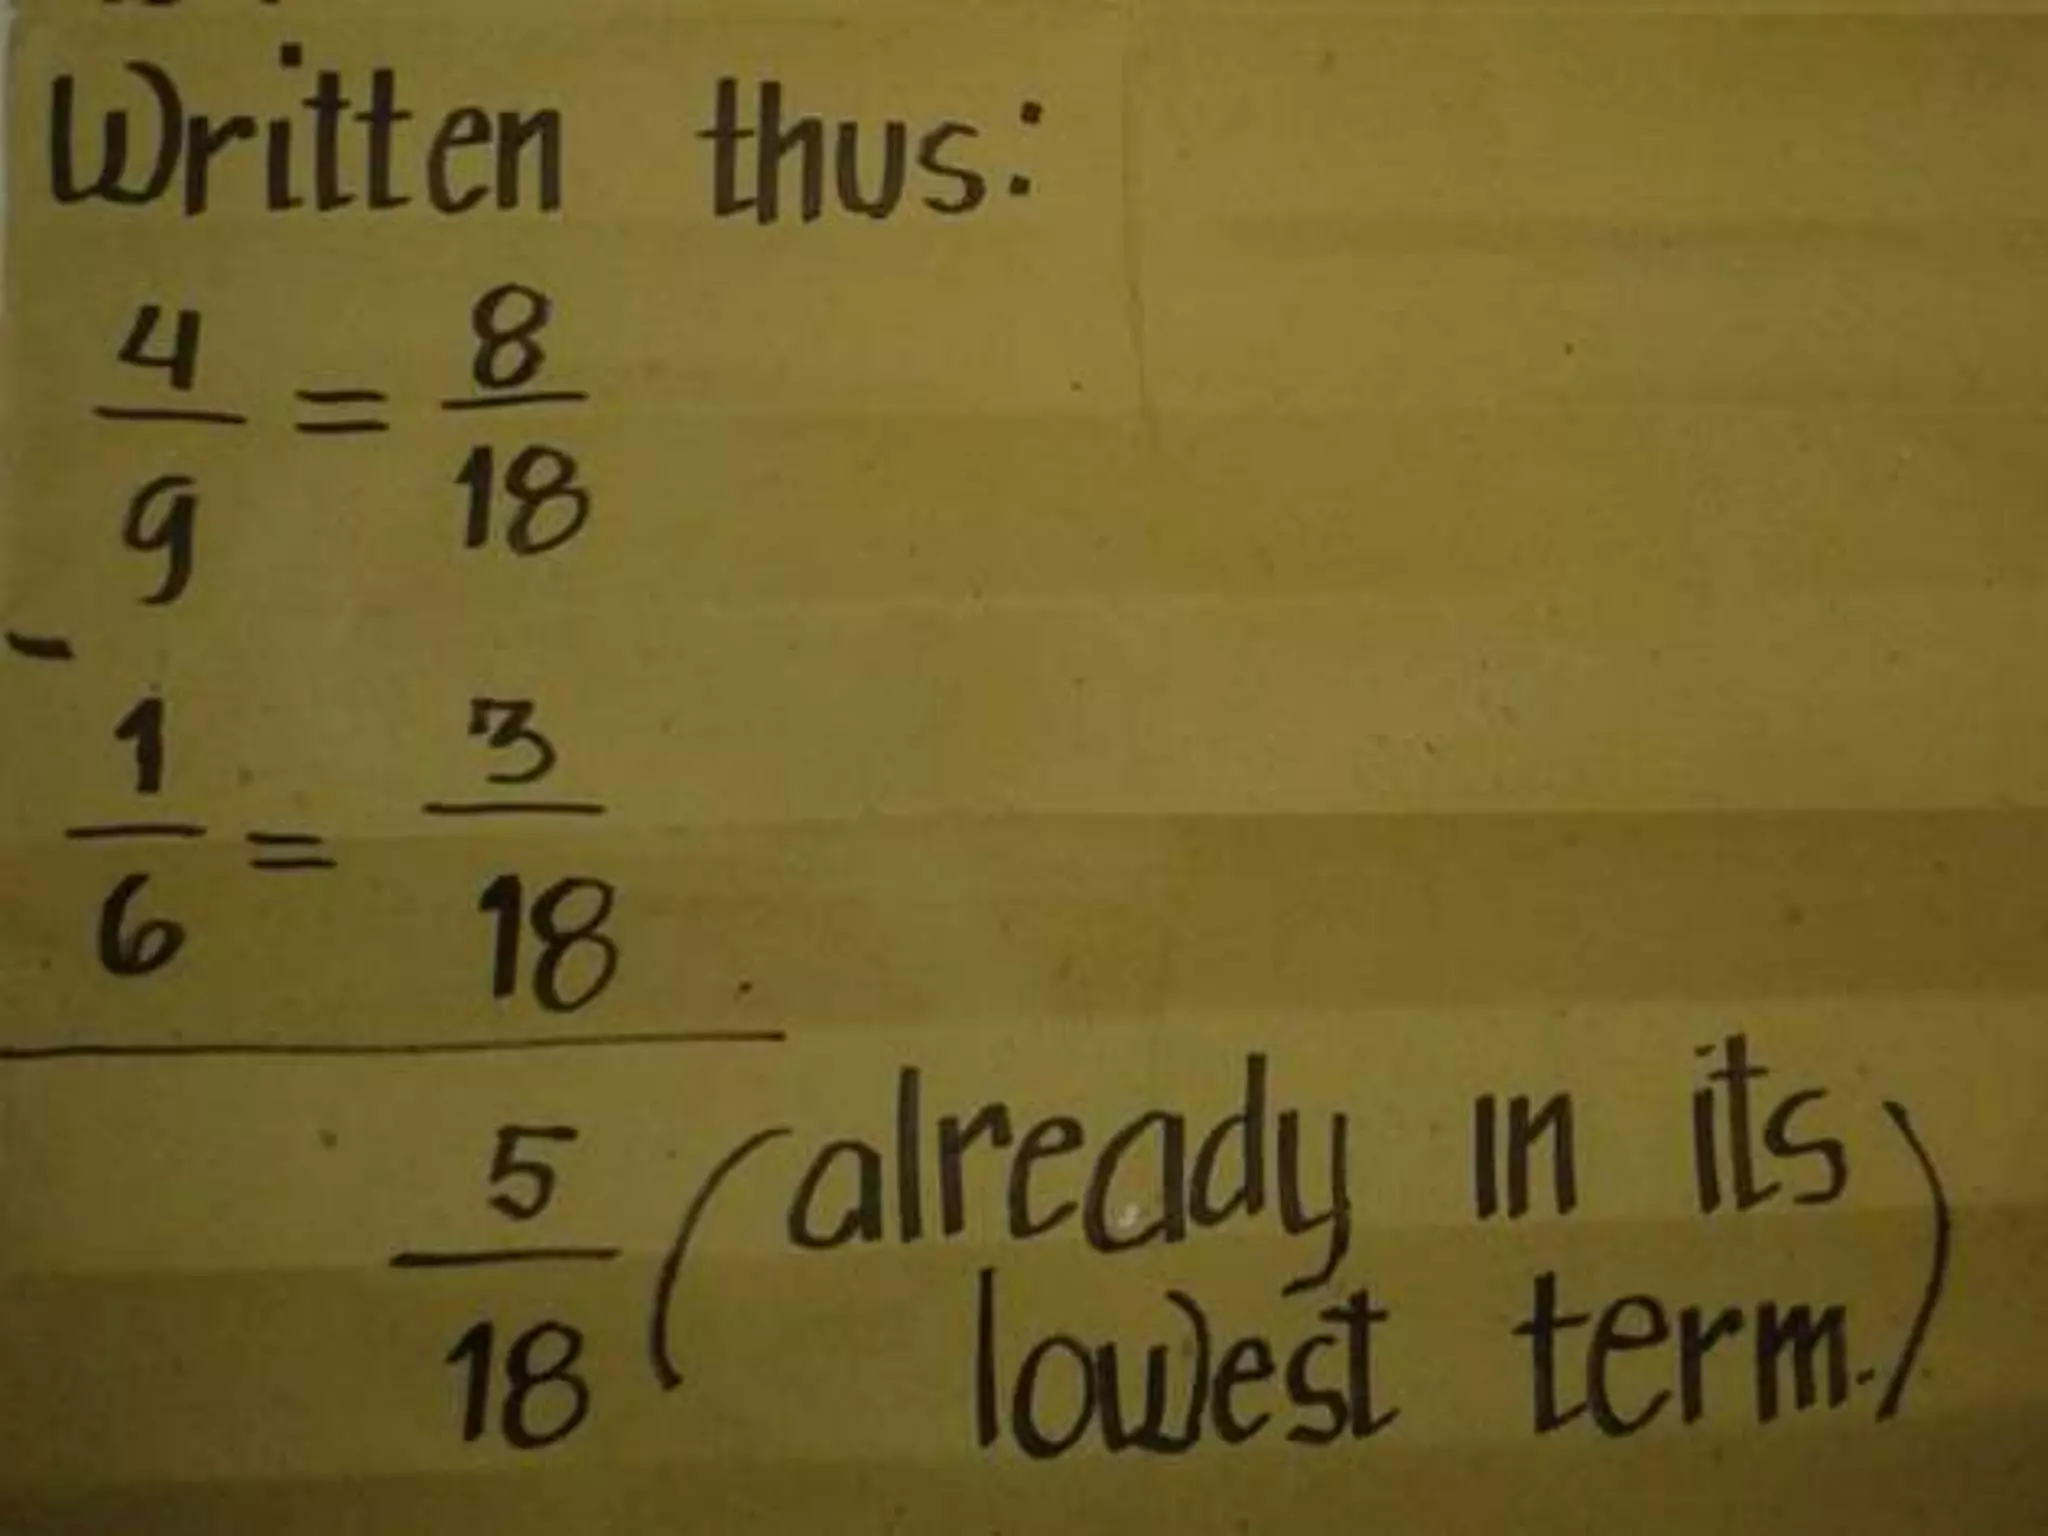 Written thus:
4/9 = 8/18
-
1/6 = 3/18
5/18 (already in its
lowest term.)